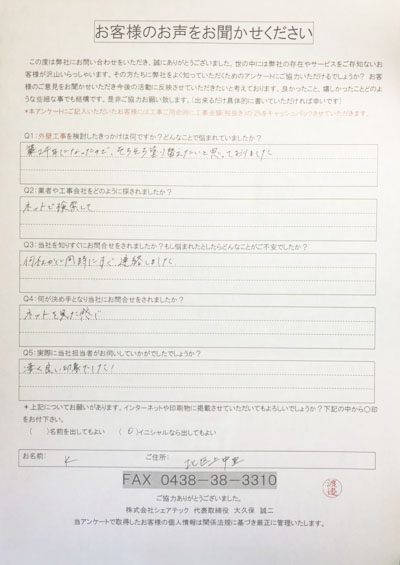 お客様のお声をお聞かせください
この度は弊社にお問い合わせをいただき、誠にありがとうございました。世の中には弊社の存在やサービスをご存知ないお
客様が沢山いらっしゃいます。その方たちに弊社をよく知っていただくためのアンケートにご協力いただけるでしょうか？ お客
様のご意見をお聞かせいただき今後の活動に反映させていただきたいと考えております。良かったこと、嬉しかったことどのよう
な些細な事でも結構です。是非ご協力お願い致します。(出来るだけ具体的に書いていただければ幸いです)
*本アンケートにご記入いただいたお客様には工事ご用命時に工事金額(税抜き)の2%をキャッシュバックさせていただきます。
Q1：外壁工事を検討したきっかけは何ですか？どんなことで悩まれていましたか？
築24年になったので、そろそろ塗り替えたいと思っておりました
Q2：業者や工事会社をどのように探されましたか？
ネットで検索して
Q3：当社を知りすぐにお問合せをされましたか？もし悩まれたとしたらどんなことがご不安でしたか？
何社かに同時にすぐ連絡しました
Q4：何が決め手となり当社にお問合せをされましたか？
ネットを見た感じ
Q5：実際に当社担当者がお伺いしていかがでしたでしょうか？
凄く良い印象でした！
＊上記についてお願いがあります。インターネットや印刷物に掲載させていただいてもよろしいでしょうか？下記の中から〇印
をお付下さい。
(　)名前を出してもよい　(O)イニシャルなら出してもよい
お名前：　K　ご住所：
FAX 0438-38-3310
ご協力ありがとうございました。
株式会社シェアテック 代表取締役 大久保 誠二
当アンケートで取得したお客様の個人情報は関係法規に基づき厳正に管理いたします。
渡邉